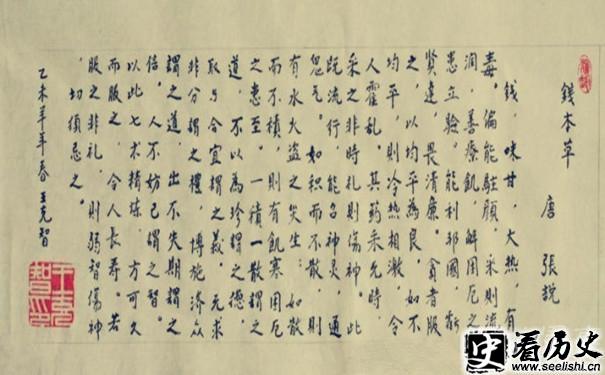 錢本草
唐 張說
钱,味甘,大热,有
毒。偏能駐顏,采则流
润,善療飢,解困厄之
患立驗。能利邦國,虧
賢達,畏清廉。貪者服
之,以均平為良。如不
均平,則冷热相激,令
人霍亂。其药采无時,
采之非時則傷神。此
既流行,能召神灵,通
鬼气。如积而不散,則
有水火盗之災生;如散
而不積,則有飢寒困厄
之患至。一積一散謂之
道,不以為珍謂之德,
取与合宜謂之義,无求
非分謂之禮,博施濟众
謂之道,出不失期謂之
信,人不妨己謂之智。
以此七术精炼,方可久
而服之,令人長寿。若
服之非礼,則弱智傷神
,切須忌之。
乙未羊年春王克智
史看历史
www.seelishi.cn